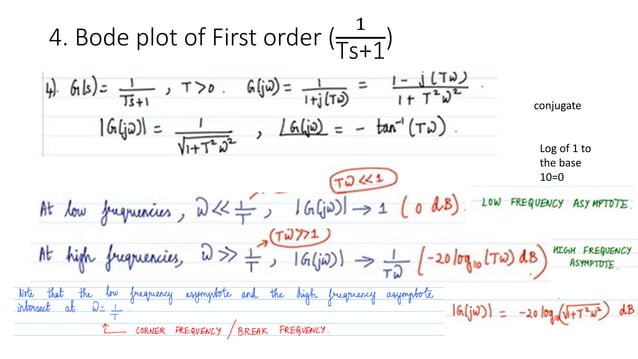 4. Bode plot of First order (1/(Ts+1))
4). G(s) = 1/(Ts+1) , T>0. G(jω) = 1/(1+j(Tω)) = (1-j(Tω))/(1+T²ω²)
conjugate
|G(jω)| = 1/√(1+T²ω²) , ∠G(jω) = - tan⁻¹(Tω).
Log of 1 to
the base
10=0
Tω<<1
At low frequencies, ω << 1/T , |G(jω)| → 1 (0 dB). LOW FREQUENCY ASYMPTOTE.
(Tω>>1)
At high frequencies, ω >> 1/T , |G(jω)| → 1/Tω (-20 log₁₀ (Tω) dB) HIGH FREQUENCY
ASYMPTOTE.
Note that the low frequency asymptote and the high frequency asymptote
intersect at ω = 1/T.
|G(jω)| = -20 log₁₀(√(1+T²ω²)) dB
CORNER FREQUENCY / BREAK FREQUENCY.